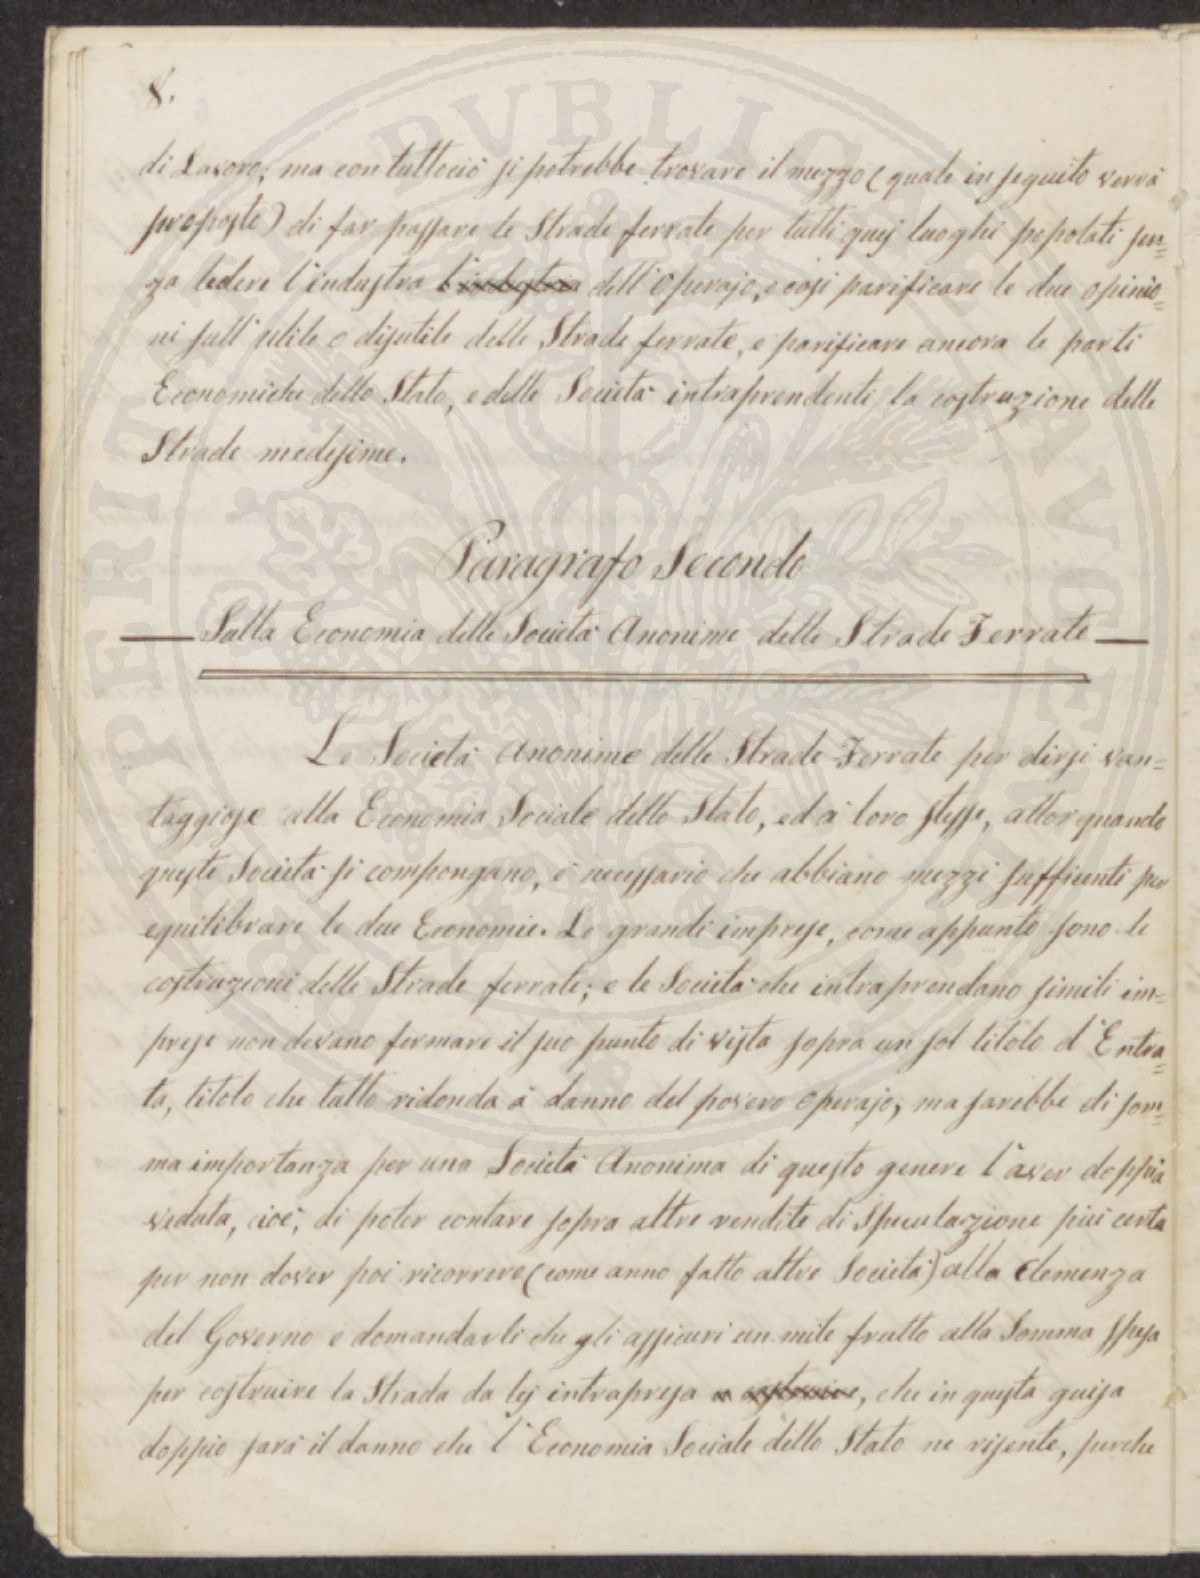 8.
di Lavoro; ma con tuttociò si potrebbe trovare il mezzo (quale in seguito verrà
proposto) di far passare le Strade ferrate per tutti quej luoghi popolati sen=
za ledere l'industra l'industria dell'Operajo, e così parificare le due opinio=
ni sull'utile o disutile delle Strade ferrate, e parificare ancora le parti
Economiche dello Stato, e delle Società intraprendenti la costruzione delle
Strade medesime.
Paragrafo Secondo
— Sulla Economia delle Società Anonime delle Strade Ferrate —
Le Società Anonime delle Strade Ferrate per dirsi van=
taggiose alla Economia Sociale dello Stato, ed à loro stesse, allor quando
queste Società si compongano, è necessario che abbiano mezzi sufficienti per
equilibrare le due Economie. Le grandi imprese, come appunto sono le
costruzioni delle Strade ferrate; e le Società che intraprendano simili im=
prese non devano fermare il suo punto di vista sopra un sol titolo d'Entra=
ta, titolo che tutto ridonda à danno del povero operajo, ma sarebbe di som=
ma importanza per una Società Anonima di questo genere l'aver doppia
veduta, cioè, di poter contare sopra altre rendite di Speculazione più certa
per non dover poi ricorrere (come anno fatto altre Società) alla Clemenza
del Governo e domandarli che gli assicuri un mite frutto alla Somma spesa
per costruire la Strada da lej intrapresa a costruire, che in questa guisa
doppio sarà il danno che l'Economia Sociale dello Stato ne risente, perche
PERITI PUBLICAE AUGENT